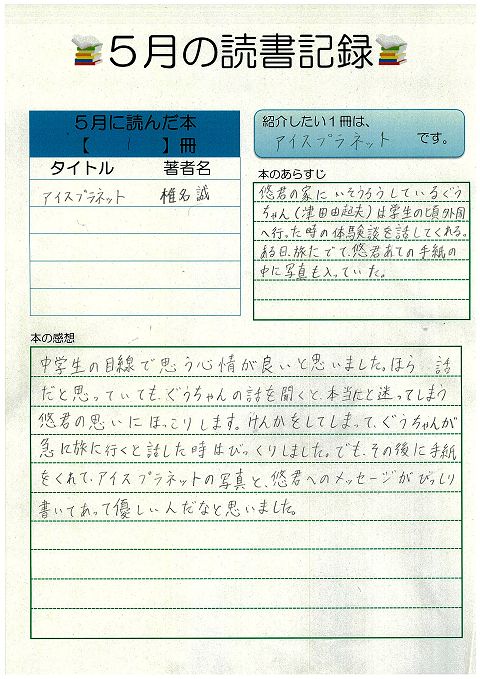 5月の読書記録
5月に読んだ本
【 1 】冊
タイトル 著者名
アイスプラネット 椎名誠
紹介したい1冊は、
アイスプラネット です。
本のあらすじ
悠君の家にいそうろうしているぐう
ちゃん(津田由起夫)は学生の頃外国
へ行った時の体験談を話してくれる。
ある日、旅にでて、悠君あての手紙の
中に写真も入っていた。
本の感想
中学生の目線で思う心情が良いと思いました。ほら話
だと思っていても、ぐうちゃんの話を聞くと、本当にと迷ってしまう
悠君の思いにほっこりします。けんかをしてしまって、ぐうちゃんが
急に旅に行くと話した時はびっくりしました。でも、その後に手紙
をくれて、アイスプラネットの写真と、悠君へのメッセージがびっしり
書いてあって優しい人だなと思いました。